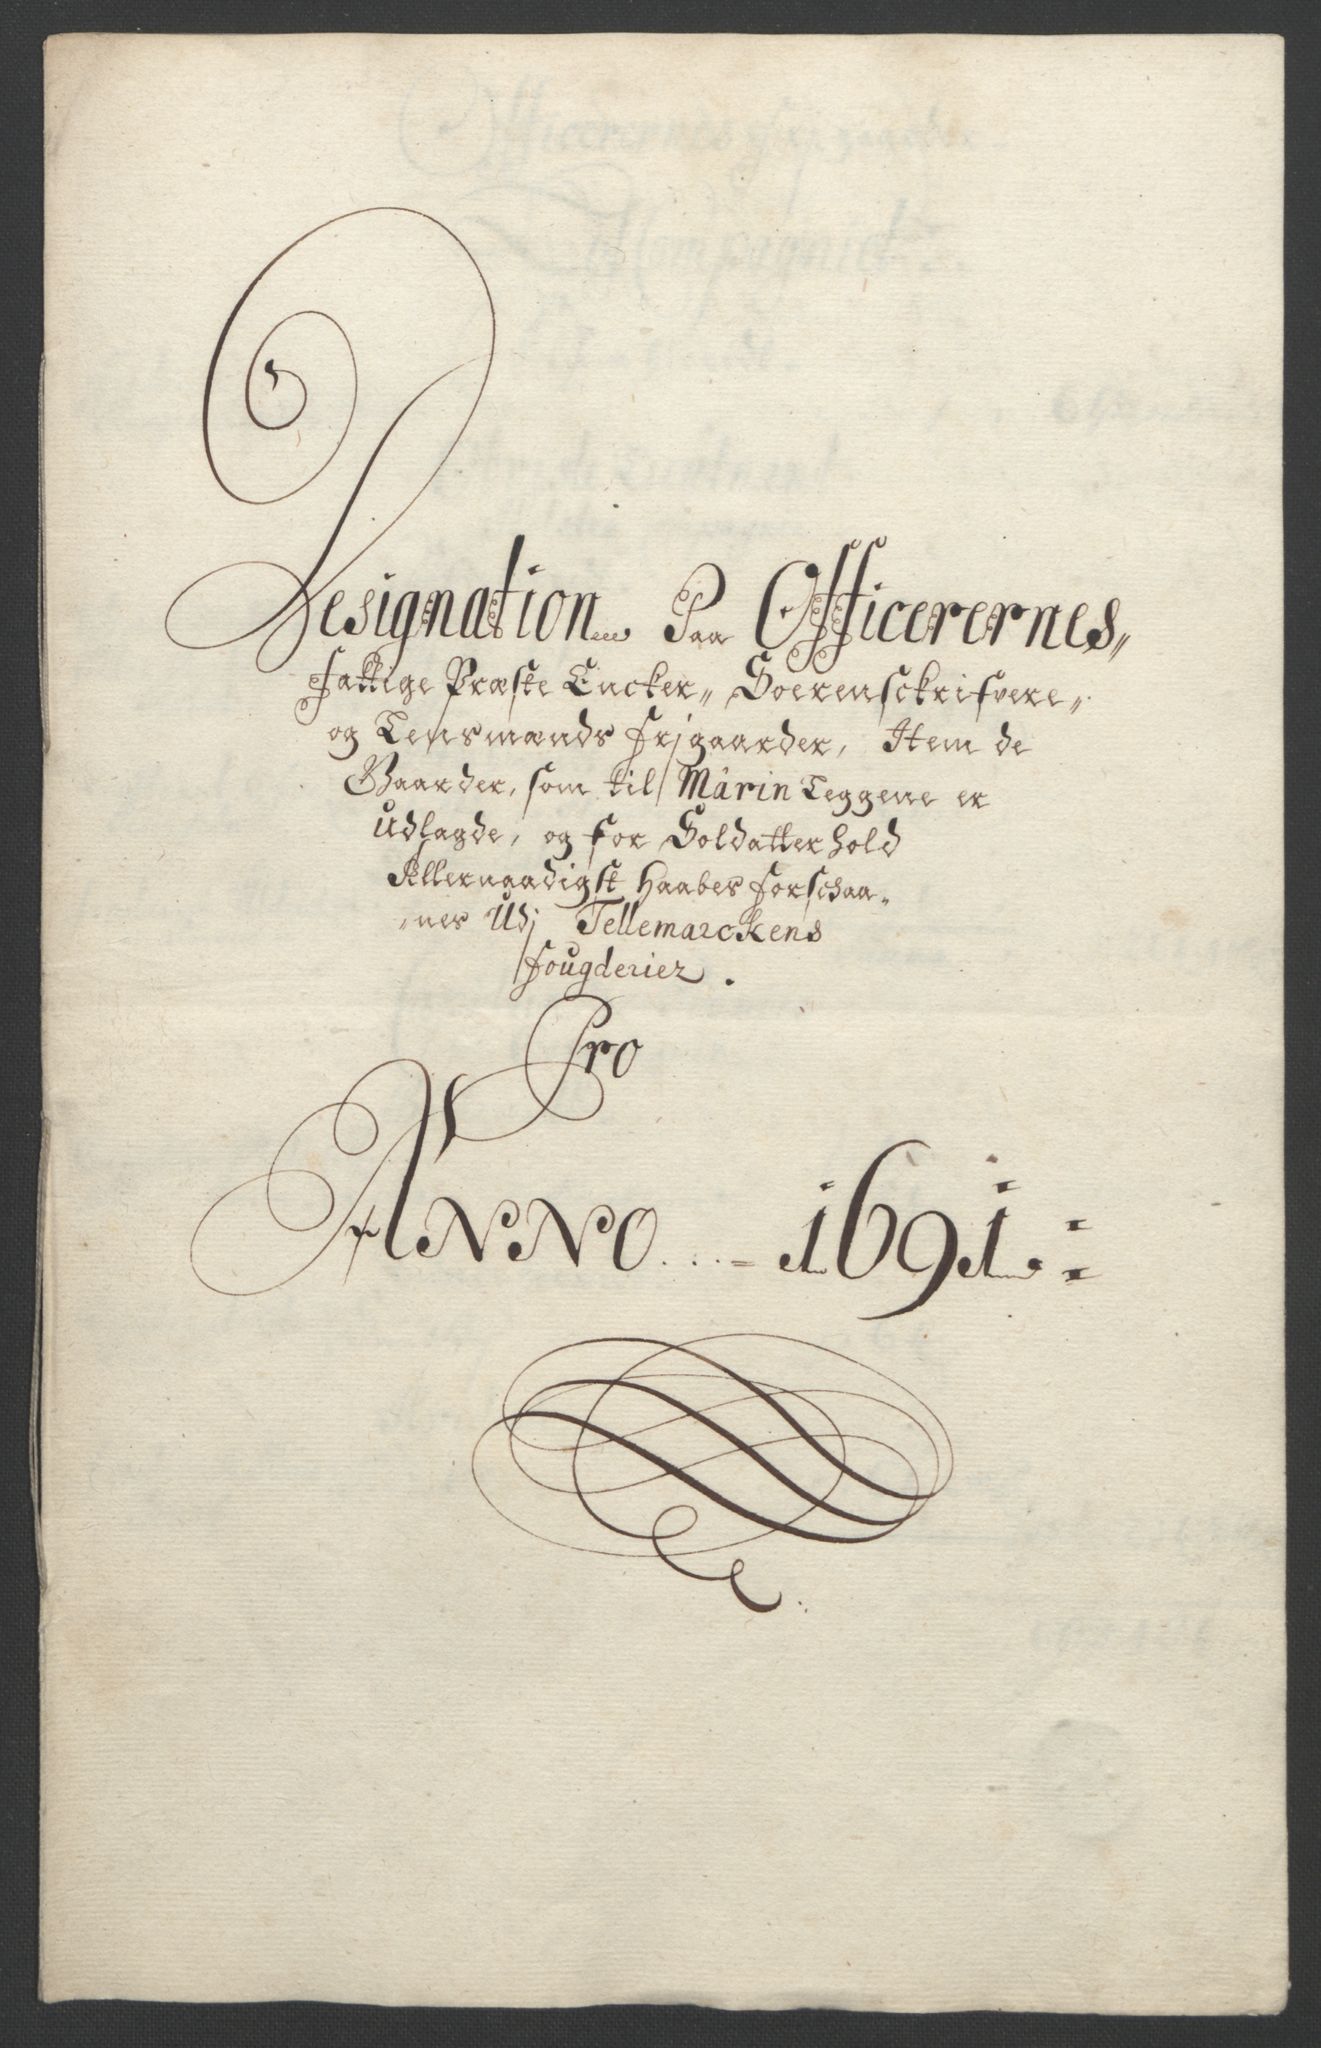 Designation Paa Officerernes,,
fattige Præste Encker,, Soerenschrifvere,,
og Lensmænds frjgaarder, Item de
Gaarder, som til Marin Leggene er
Udlagde, og for Soldatter hold
Allernaadigst Haabes forschaa-
-nes Udj Tellemarckens
fougderier.
Pro
ANNO....- 1691.: